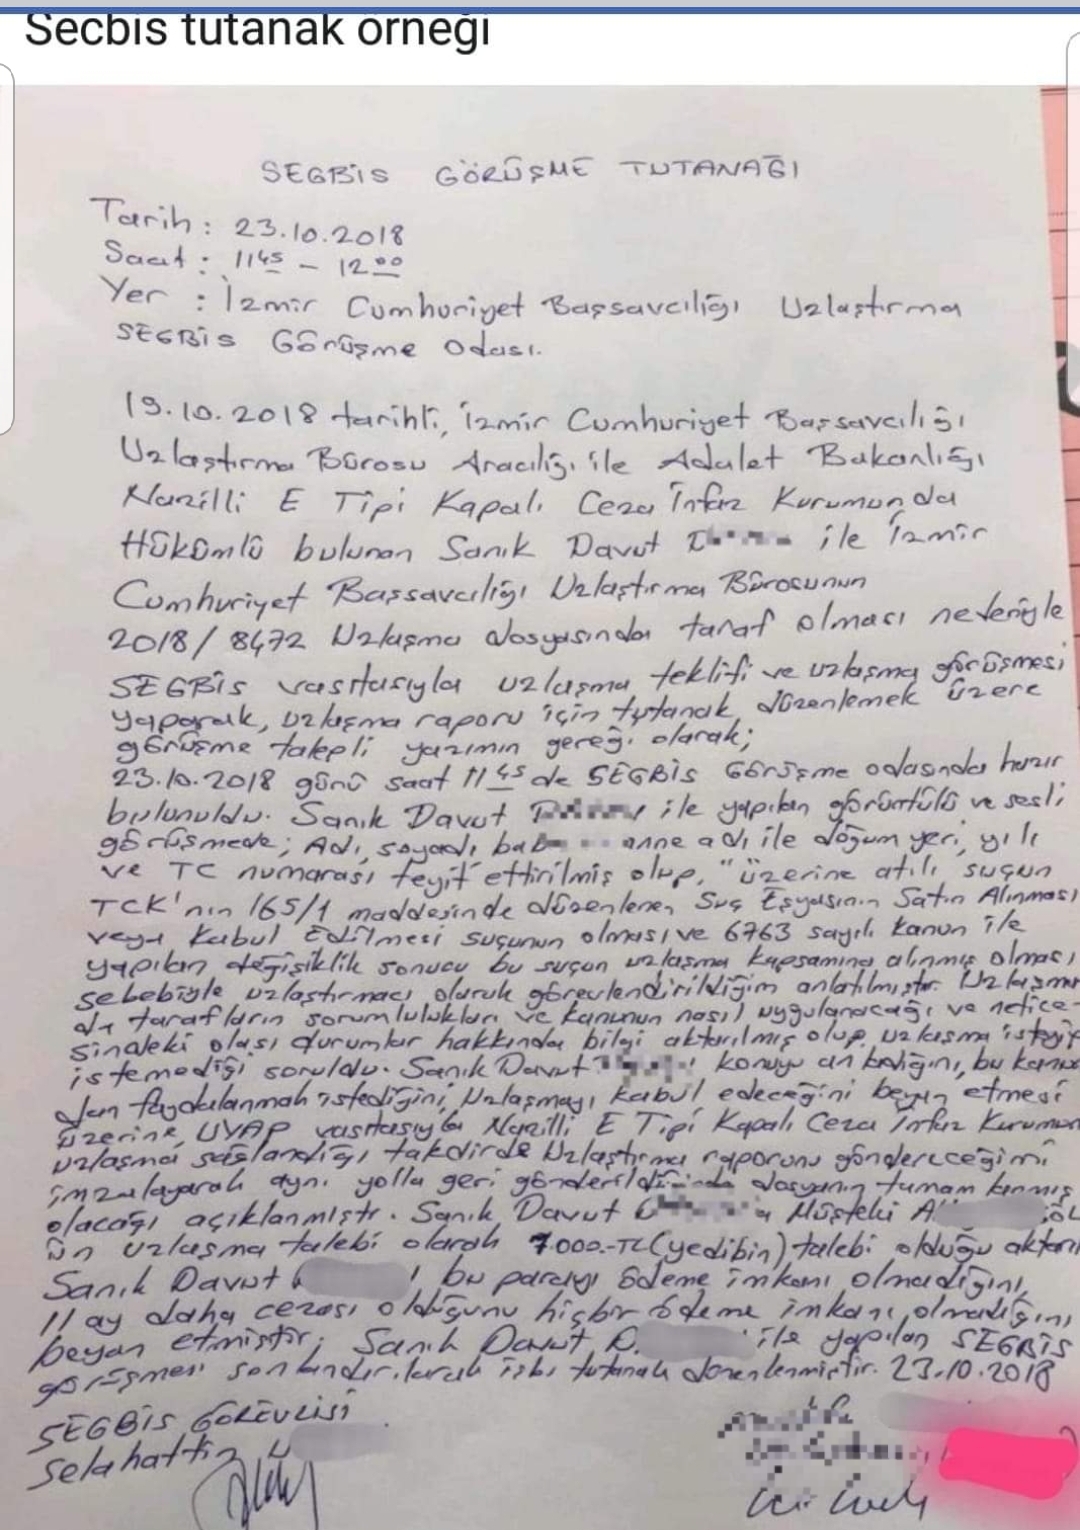 Secbis tutanak örneği
SEGBİS GÖRÜŞME TUTANAĞI
Tarih: 23.10.2018
Saat: 11 45 - 12 00
Yer : İzmir Cumhuriyet Başsavcılığı Uzlaştırma
SEGBİS Görüşme Odası.
19.10.2018 tarihli, İzmir Cumhuriyet Başsavcılığı
Uzlaştırma Bürosu Aracılığı ile Adalet Bakanlığı
Nazilli E Tipi Kapalı Ceza İnfaz Kurumunda
Hükümlü bulunan Sanık Davut ile İzmir
Cumhuriyet Başsavcılığı Uzlaştırma Bürosunun
2018/8472 Uzlaşma dosyasında taraf olması nedeniyle
SEGBİS vasıtasıyla uzlaşma teklifi ve uzlaşma görüşmesi
yaparak, uzlaşma raporu için tutanak düzenlemek üzere
görüşme talepli yazımın gereği olarak;
23.10.2018 günü saat 11 45 de SEGBİS Görüşme odasında hazır
bulunuldu. Sanık Davut ile yapılan görüntülü ve sesli
görüşmede; Adı, soyadı, bab anne adı ile doğum yeri, yılı
ve TC numarası teyit ettirilmiş olup, "üzerine atılı suçun
TCK'nın 165/1 maddesinde düzenlenen Suç Eşyasının Satın Alınması
veya Kabul Edilmesi suçunun olması ve 6763 sayılı kanun ile
yapılan değişiklik sonucu bu suçun uzlaşma kapsamına alınmış olması
sebebiyle uzlaştırmacı olarak görevlendirildiğim anlatılmıştır. Uzlaşma
da tarafların sorumlulukları ve kanunun nasıl uygulanacağı ve netice-
sindeki olası durumlar hakkında bilgi aktarılmış olup, uzlaşma isteyip
istemediği soruldu. Sanık Davut konuyu anladığını, bu kanun
dan faydalanmak istediğini, Uzlaşmayı kabul edeceğini beyan etmesi
üzerine, UYAP vasıtasıyla Nazilli E Tipi Kapalı Ceza İnfaz Kurumun
uzlaşma sağlandığı takdirde Uzlaştırma raporunu göndereceğimi
imzalayarak aynı yolla geri gönderildiğinde dosyanın tamamlanmış
olacağı açıklanmıştır. Sanık Davut Müşteki A
ün uzlaşma talebi olarak 7.000.-TL(yedibin) talebi olduğu aktarıl
Sanık Davut , bu parayı ödeme imkanı olmadığını,
11 ay daha cezası olduğunu hiçbir ödeme imkanı olmadığını
beyan etmiştir; Sanık Davut D. ile yapılan SEGBİS
görüşmesi sonlandırılarak işbu tutanak düzenlenmiştir. 23.10.2018
SEGBİS GÖREVLİSİ
Selahattin